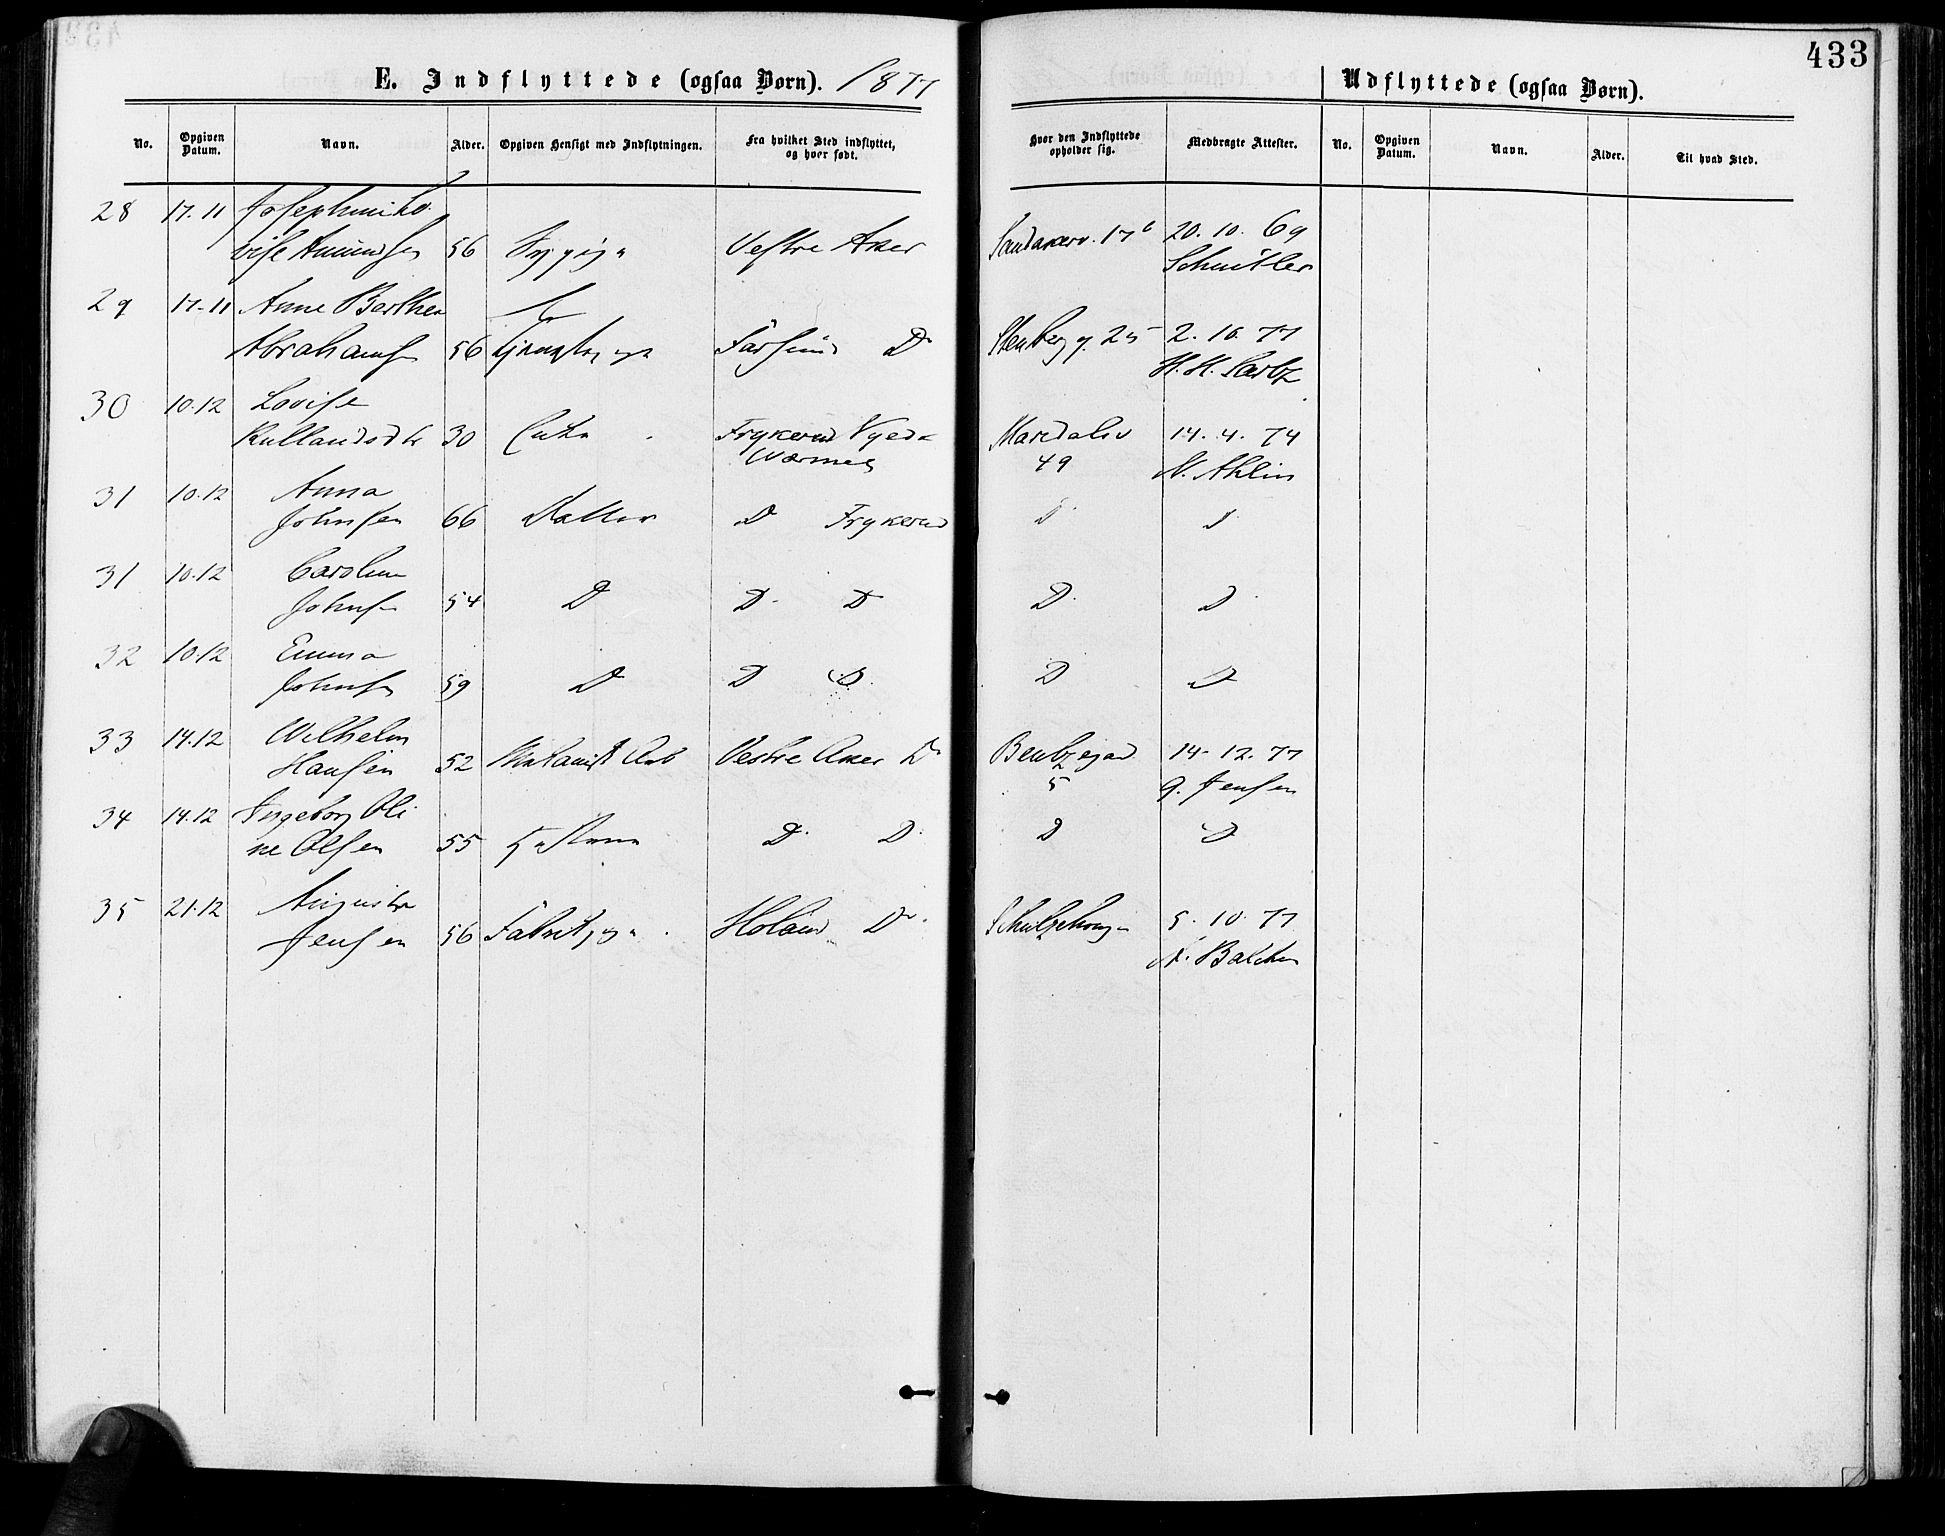 433
E. Indflyttede (ogsaa Børn). 1877
Udflyttede (ogsaa Børn).
No. Opgiven Datum. Navn. Alder. Opgiven Hensigt med Indflytningen. Fra hvilket Sted indflyttet, og hvor født.
Hvor den Indflyttede opholder sig. Medbragte Attester. No. Opgiven Datum. Navn. Alder. Til hvad Sted.
28 17.11 Josephine Lo
vise Amundsen 56 Vestre Aker Sandakerv. 17b 20.10.69
Schnitler
29 17-11 Anne Berthea
Abrahams 56 Farsund D Stenberg g. 25 2.10.77
H. H.
30 10.12 Lovise
Rullandsdtr 30 Enke Frykerud Nyed
Wærmel
Maridalsv 14.4.74
49 N. Ahlin
31 10.12 Anna
Johnsen 66 Datter D Frykerud D D
31 10.12 Caroline
Johnsen 54 D D D D D
32 10.12 Emma
Johnsen 59 D D D D D
33 14.12 Wilhelm
Hansen 52 Vestre Aker D Bentzegad 14-12.77
5 G. Jensen
34 14.12 Ingeborg Oli
ne Olsen 55 Hustru D D D D
35 21.12 Auguste
Jensen 56 Høland D Schultzehaug 5.10.77
N. Balchen